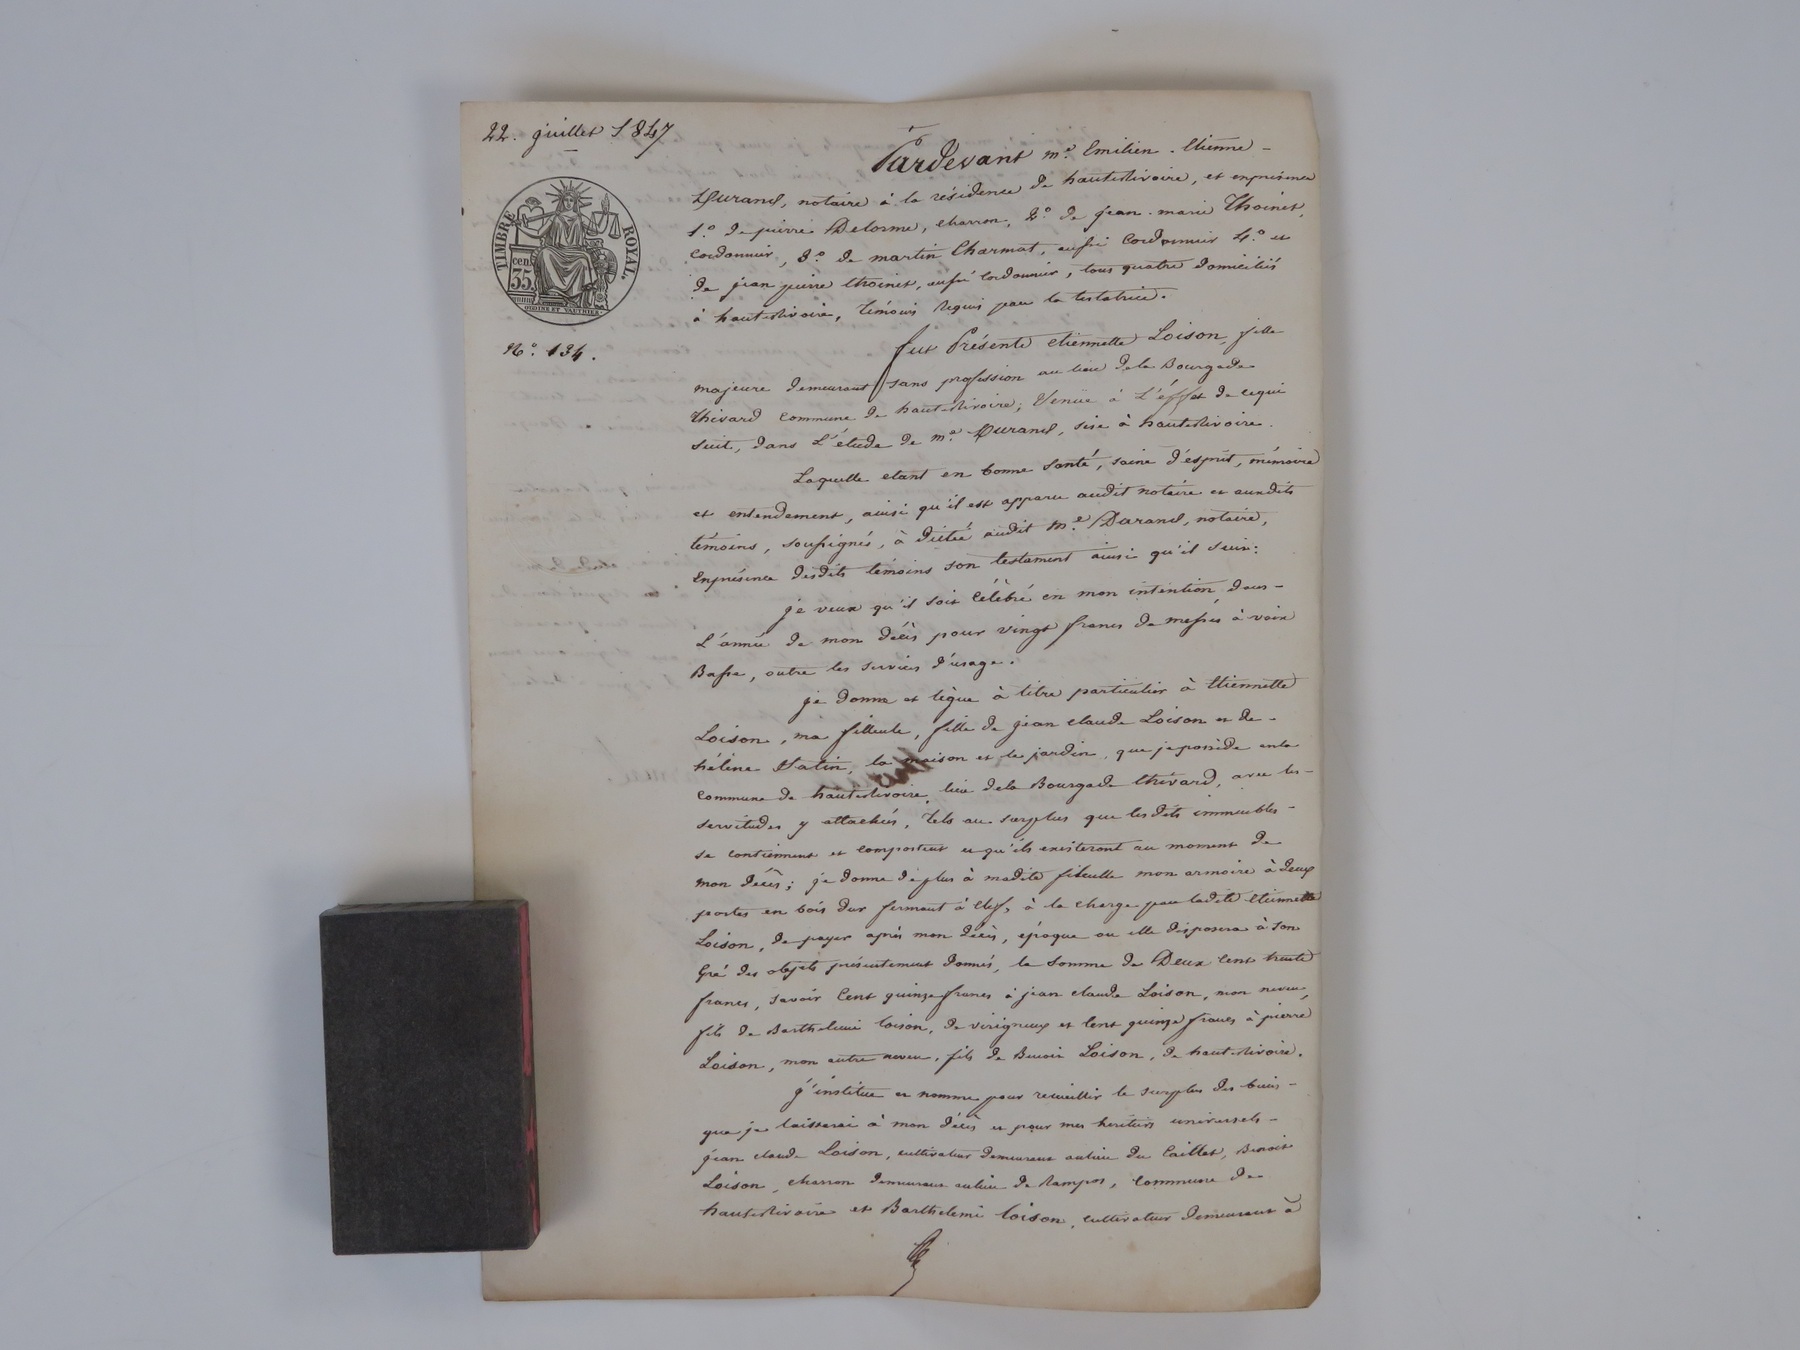 22. juillet 1847
TIMBRE ROYAL.
cen.
35
N.º 134.
Pardevant m.e Emilien. Etienne -
Durand, notaire à la résidence de hauterivoire, et enprésence
1.º de pierre Delorme, charron, 2.º de jean. marie Thoinet,
cordonnier, 3.º de martin Charmat, aussi cordonnier 4.º et
de jean pierre thoinet, aussi cordonnier, tous quatre domiciliés
à hauterivoire, témoins requis par la testatrice.
fut Présente etiennette Loison, fille
majeure demeurant sans profession au lieu dela Bourgade
thivard commune de hauterivoire; Venue à L'éffet de cequi
suit, dans L'étude de m.e Durand, sise à hauterivoire.
Laquelle etant en bonne santé, saine d'esprit, mémoire
et entendement, ainsi qu'il est apparu audit notaire et auxdits
témoins, soussignés, à dicté audit M.e Durand, notaire,
Enprésence desdits témoins son testament ainsi qu'il suit:
je veux qu'il soit Célébré en mon intention dans -
L'année de mon décès pour vingt francs de messes à voix
Basse, outre les services d'usage.
je donne et lègue à titre particulier à Etiennette
Loison, ma filleule, fille de jean claude Loison et de -
hélène, la maison et le jardin, que je possède enla
commune de hauterivoire, lieu dela Bourgade thivard, avec les -
servitudes y attachées, tels au surplus que lesdits immeubles -
se contiennent et comportent et qu'ils existeront au moment de
mon décès; je donne de plus à madite filleulle mon armoire à deux
portes en bois dur fermant à clef, à la charge par ladite etiennette
Loison, de payer après mon décès, époque ou elle disposera à son
Gré des objets présentement donnés, la somme de Deux cent trente
francs, savoir Cent quinze francs à jean claude Loison, mon neveu,
fils de Barthelemi loison, de virigneux et cent quinze francs à pierre
Loison, mon autre neveu, fils de Benoit Loison, de hauterivoire.
j'institue et nomme pour recueillir le surplus des biens -
que je laisserai à mon décès et pour mes heritiers universels -
jean claude Loison, cultivateur demeurant aulieu du Caillet, Benoit
Loison, charron demeurant aulieu de rampos, commune de
hauterivoire et Barthelemi loison, cultivateur demeurant à